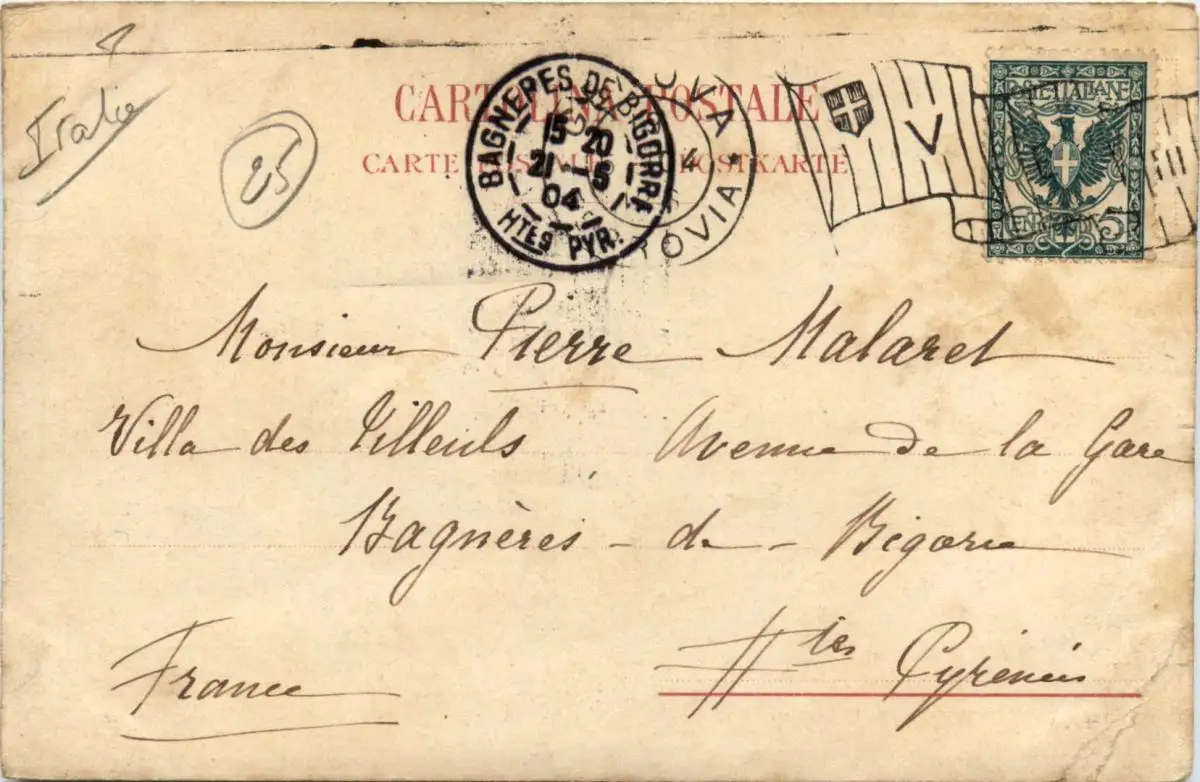 Italie
25
CARTOLINA POSTALE
CARTE POSTALE POSTKARTE
BAGNERES DE BIGORRE
15 20
21 - 5
04
HTES PYR.
OVA
4
OVIA *
V
POSTE ITALIANE
CENTESIMI 5
Monsieur Pierre Malaret
Villa des Tilleuls Avenue de la Gare
Bagnères - de - Bigorre
France Htes Pyrénées